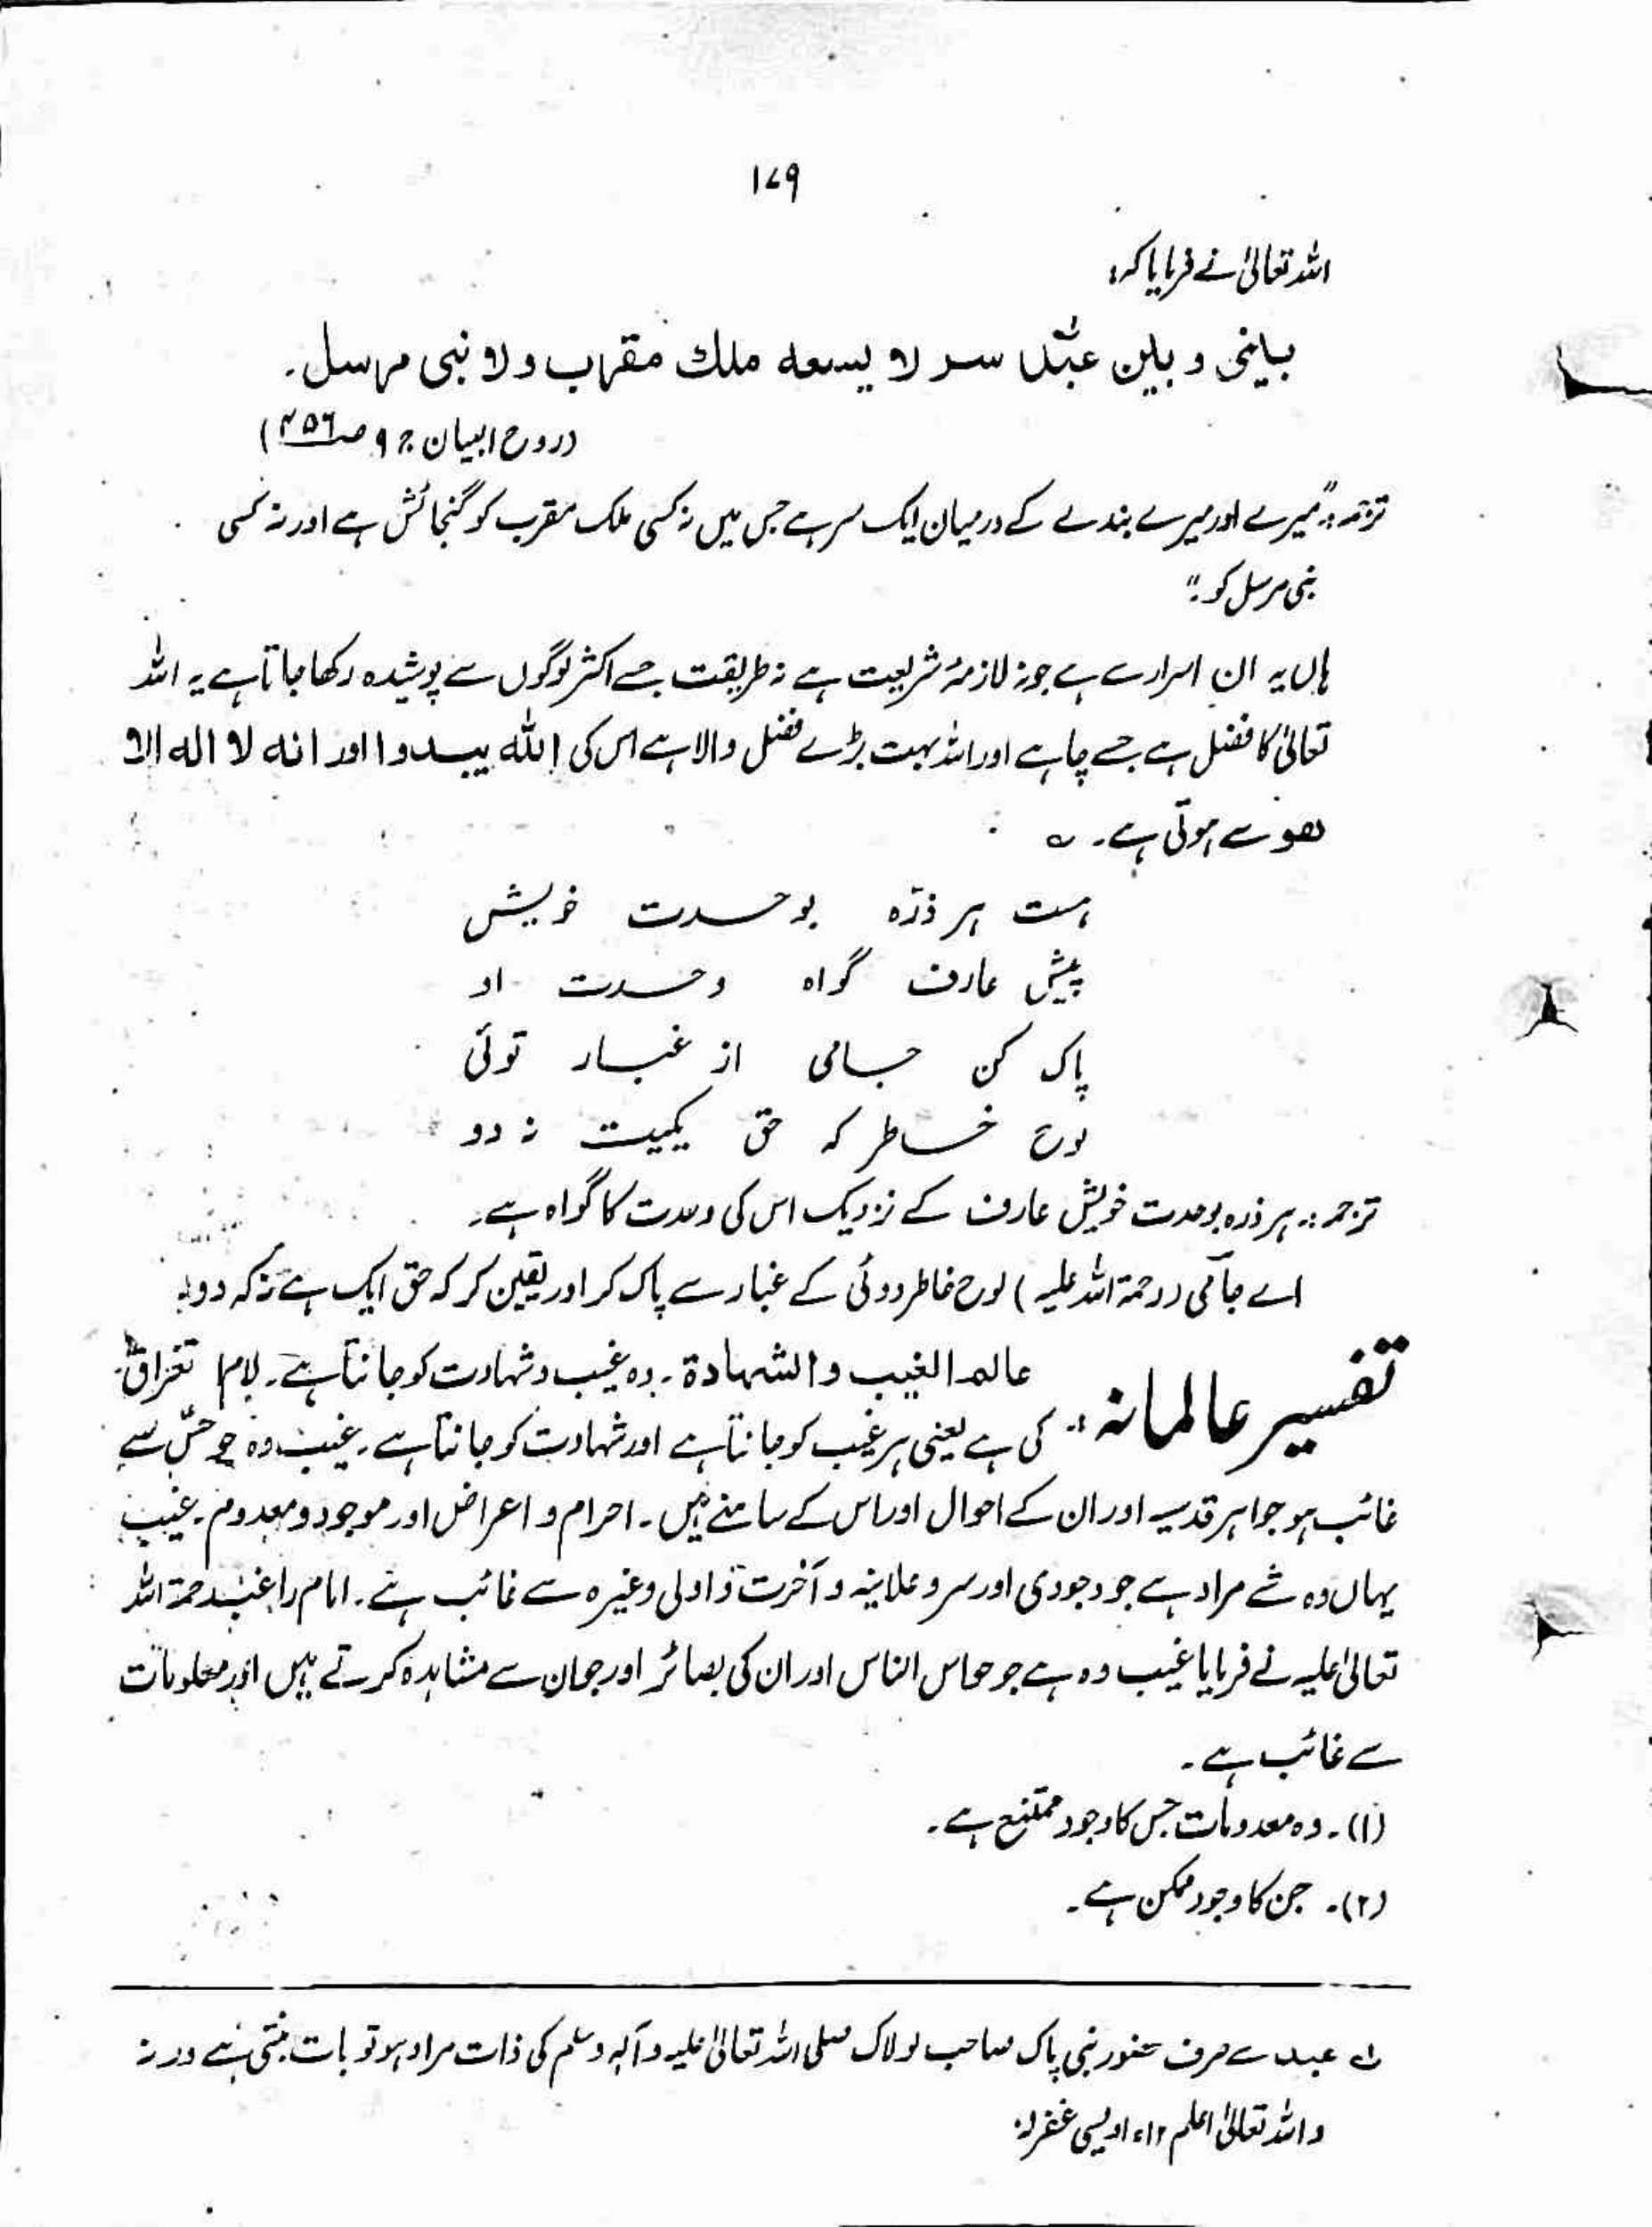 ۱۷۹
اللہ تعالیٰ نے فرمایا کہ:
بینی و بین عبدی سر لا یسعه ملك مقرب ولا نبی مرسل۔
(روح البیان ج ۹ ص ۴۵۶)
ترجمہ: "میرے اور میرے بندے کے درمیان ایک سر ہے جس میں نہ کسی ملک مقرب کو گنجائش ہے اور نہ کسی
نبی مرسل کو۔"
ہاں یہ ان اسرار سے ہے جو نہ لازمۂ شریعت ہے نہ طریقت جسے اکثر لوگوں سے پوشیدہ رکھا جاتا ہے یہ اللہ
تعالیٰ کا فضل ہے جسے چاہے اور اللہ بہت بڑے فضل والا ہے اس کی اللہ یبدوا اور انه لا اله الا
ھو سے ہوتی ہے۔ ؎
ہست ہر ذرّہ بوحدت خویش
پیش عارف گواہ وحدت او
پاک کن جامی از غبار توئی
لوح خاطر کہ حق یکیست نہ دو
ترجمہ:۔ ہر ذرہ بوحدت خویش عارف کے نزدیک اس کی وحدت کا گواہ ہے۔
اے جامی (رحمۃ اللہ علیہ) لوح خاطر دوئی کے غبار سے پاک کر اور یقین کر کہ حق ایک ہے نہ کہ دو۔
تفسیر عالمانہ: عالم الغیب والشهادة۔ وہ غیب و شہادت کو جانتا ہے۔ لام استغراق
کی ہے یعنی ہر غیب کو جانتا ہے اور شہادت کو جانتا ہے۔ غیب وہ جو حسّ سے
غائب ہو جواہر قدسیہ اور ان کے احوال اور اس کے سامنے ہیں۔ اجرام و اعراض اور موجود و معدوم۔ غیب
یہاں وہ شے مراد ہے جو وجودی اور سر و علانیہ و آخرت و اولی وغیرہ سے غائب ہے۔ امام راغب رحمۃ اللہ
تعالیٰ علیہ نے فرمایا غیب وہ ہے جو حواس الناس اور ان کی بصائر اور جو ان سے مشاہدہ کرتے ہیں اور معلومات
سے غائب ہے۔
(۱)۔ وہ معدومات جس کا وجود ممتنع ہے۔
(۲)۔ جن کا وجود ممکن ہے۔
عبد سے صرف حضور نبی پاک صاحب لولاک صلی اللہ تعالیٰ علیہ وآلہ وسلم کی ذات مراد ہو تو بات بنتی ہے ورنہ
واللہ تعالیٰ اعلم ۱۲ء اویسی غفرلہ